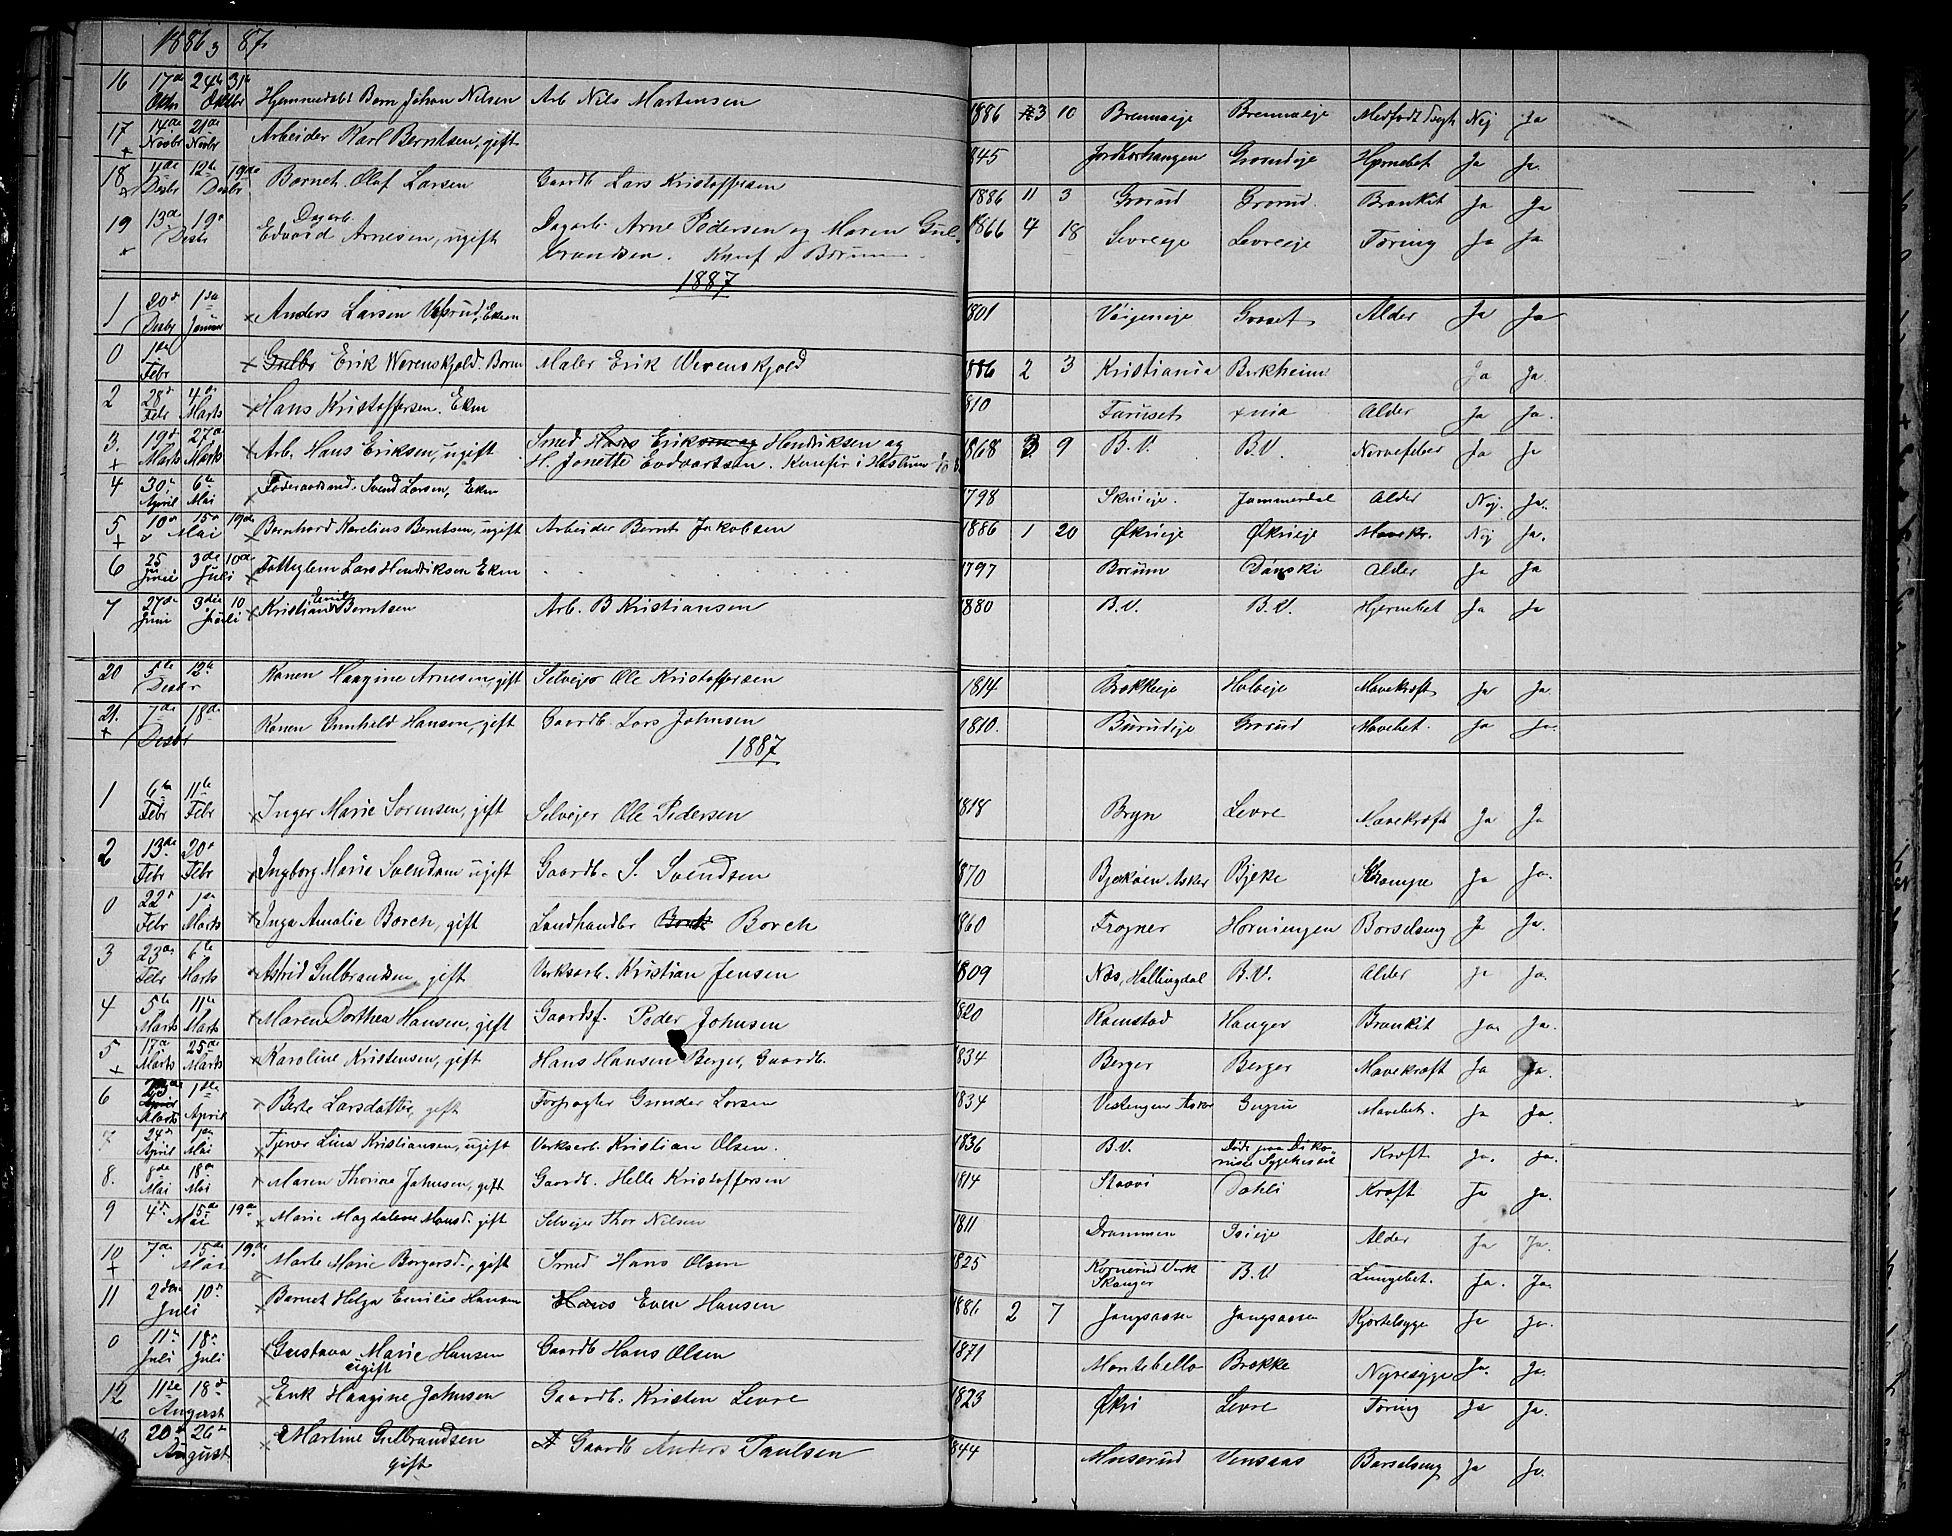 1886 87
16 17de Oktbr 24de 31te Oktbr Hjemmedøbt Barn Johan Nilsen Arb Nils Martensen 1886 3 10 Brennaeje Brennaeje Medfødt Svgh Nej Ja
17 14de Novbr 21de Novbr Arbeider Karl Berntsen, gift 1845 Grorudeje Hjernebet Ja Ja
18 4de Desbr 12te 19de Desbr Barnet Olaf Larsen Gaardb Lars Kristoffersen 1886 11 3 Grorud Grorud Bronkit Ja Ja
19 13de 19de Desbr Dagarb. Edvard Arnesen, ugift Dagarb. Arne Pedersen og Maren Gul- 1866 4 18 Levreeje Levreeje Tæring Ja Ja
brandsen. Konf i Bærum
1887
1 20de Desbr 1ste Januar Anders Larsen Ekem 1801 Alder Ja Ja
0 1ste Febr Gulbr Erik Werenskjold. Barn Maler Erik Werenskjold 1886 2 3 Kristiania Berkheim Ja Ja
2 28de Febr 4de Marts Hans Kristoffersen. Ekem 1810 Furuset xnia Alder Ja Ja
3 19de Marts 27de Marts Arb. Hans Eriksen, ugift Smed Hans Hendriksen og 1868 3 9 B.V. B.V. Nervefeber Ja Ja
H. Jonette Edvartsen. Konfir i Haslum
4 30te April 6te Mai Svend Larsen, Ekem 1798 Skuieje Jammerdal Alder Nej Ja
5 10de 15de Mai 19de Bernhard Karelius Berntsen, ugift Arbeider Bernt Jakobsen 1886 1 20 Økrieje Økrieje Mavekr. Nej Ja
6 25 Juni 3die Juli 10de Fattiglem Lars Hendriksen Ekem 1797 Bærum Danski Alder Ja Ja
7 27de Juni 3die Juli 10 Kristian Emil Berntsen Arb. B Kristiansen 1880 B.V. B.V. Hjernebet Ja Ja
20 5te 12te Desbr Konen Haagine Arnesen, gift Selvejer Ole Kristoffersen 1814 Brækkeje Holveje Mavekræft Ja Ja
21. 7de 18de Desbr Konen Gunhild Hansen, gift Gaardb. Lars Johnsen 1810. Burudeje Grorud Mavebet. Ja Ja
1887
1 6te Febr 11te Febr Inger Marie Sørensen, gift Selvejer Ole Pedersen 1818 Bryn Levre Mavekræft Ja Ja
2 13de Febr 20de Febr Ingborg Marie Svendsen ugift Gaardb. S. Svendsen 1870 Bjerkaen Asker Bjerke Krampe Ja Ja
0 22de Febr 1ste Marts Inga Amalie Borch, gift Landhandler Borch 1860 Frogner Horningen Barselseng Ja Ja
3 23de Febr 6te Marts Astrid Gulbrandsen, gift Verksarb. Kristian Jensen 1809 Næs, Hallingdal B.V. Alder Ja Ja
4 5te Marts 11te Marts Maren Dorthea Hansen, gift Gaardsf. Peder Johnsen 1820 Ramstad Hauger Bronkit Ja Ja
5 17de Marts 25de Marts Karoline Kristensen, gift Hans Hansen Berger, Gaardb. 1834 Berger Berger Mavekræft Ja Ja
6 Marts 1ste April Berte Larsdatter, gift Forpagter Gunder Larsen 1834 Vestengen Asker Mavebet. Ja Ja
7 24de April 1ste Mai Tjener Lina Kristiansen, ugift Verksarb. Kristian Olsen 1836 B.V. Døde paa Diko- Kræft Ja Ja
nisse Sygehuset
8. 8de Mai 18de Mai Maren Thorine Johnsen, gift Gaardb. Helle Kristoffersen 1814 Staavi Dahli Kræft Ja Ja
9 4de 15de Mai 19de Marie Magdalene Monsd. gift Selvejer Thor Nilsen 1811 Drammen Isieje Alder Ja Ja
10 7de 15de Mai 19de Marte Marie Borgersd., gift Smed Hans Olsen 1825 Konnerud Verk Skauger B.V Lungebet. Ja Ja
11 2den 10de Juli Barnet Helga Emilie Hansen Hans Even Hansen 1886 2 7 Jongsaasen Jongsaasen Kjertelsyge Ja Ja
0 11te Juli 18de Juli Gustava Marie Hansen Gaardb Hans Olsen 1871 Montebello Brække Nyresyge Ja Ja
ugift
12 11te 18de August Enk Haagine Johnsen Gaardb. Kristen Levre 1823 Økri Levre Tæring Ja Ja
13 20de 26de August Martine Gulbrandsen Gaardb Anders Paulsen 1844 Muserud Vensaas Barselseng Ja Ja
gift